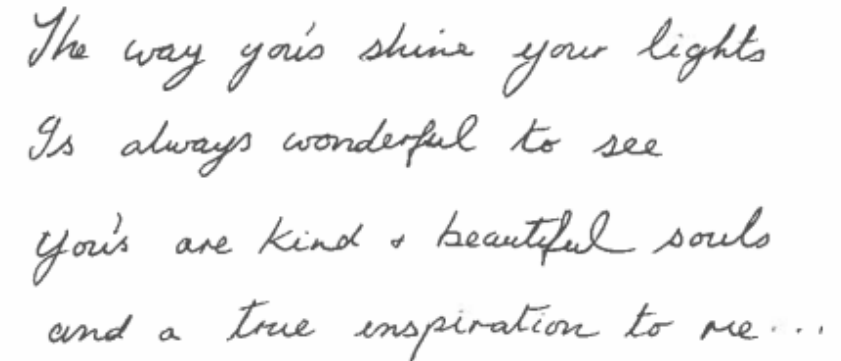 The way you's shine your lights
Is always wonderful to see
You's are kind + beautiful souls
and a true inspiration to me...